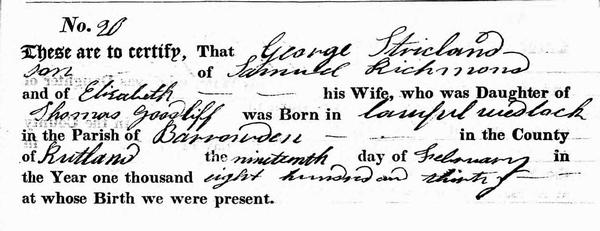 No. 20
These are to certify, That George Stricland
son of Samuel Richmond
and of Elizabeth his Wife, who was Daughter of
Thomas Goodliff was Born in lawful wedlock
in the Parish of Barrowden in the County
of Rutland the nineteenth day of February in
the Year one thousand eight hundred and thirty
at whose Birth we were present.